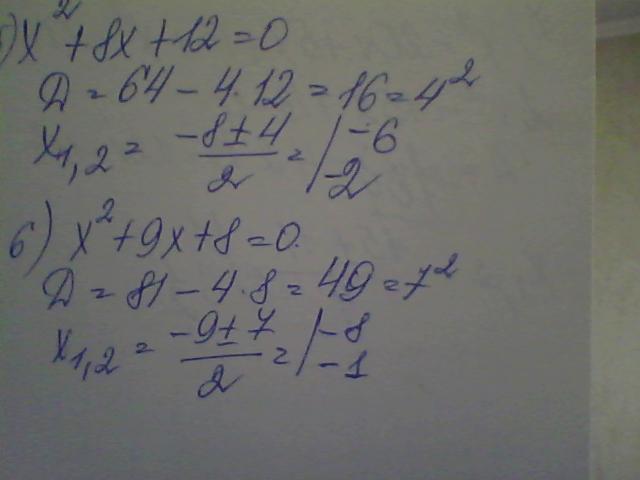 ) x² + 8x + 12 = 0
D = 64 - 4·12 = 16 = 4²
x₁,₂ = (-8 ± 4)/2 = | -6
-2
б) x² + 9x + 8 = 0.
D = 81 - 4·8 = 49 = 7²
x₁,₂ = (-9 ± 7)/2 = | -8
-1